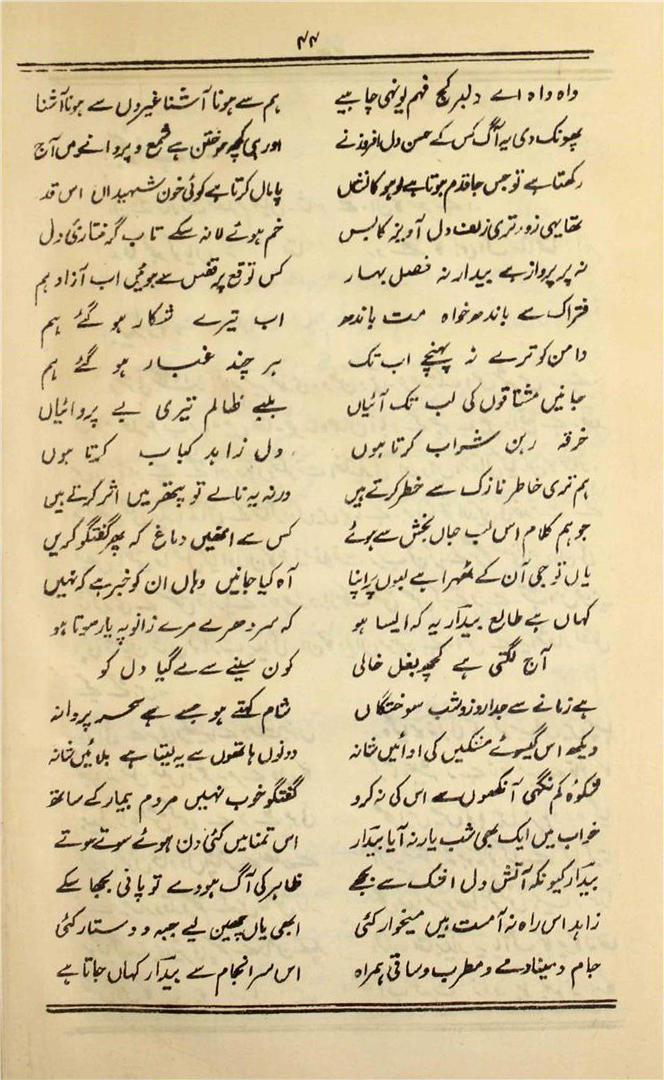 ۴۴
واہ واہ اے دلبر کج فہم یونہی چاہیے ہم سے ہونا آشنا غیروں سے ہونا آشنا
پھونک دی یہ آگ کس کے حسن دل افروز نے اور ہی کچھ سوختن ہے شمع و پروانے میں آج
رکھتا ہے تو جس جا قدم ہوتا ہے لوہو کا نشاں پامال کرتا ہے کوئی خون شہیداں اس قدر
تھا یہی زور تری زلف دل آویز کا بس خم ہوئے لا نہ سکے تاب گرفتاریٔ دل
نہ پر پرواز ہے بیدار نہ فصل بہار کس توقع پر قفس سے ہوئیں اب آزاد ہم
فتراک سے باندھ خواہ مت باندھ اب تیرے شکار ہو گئے ہم
دامن کو ترے نہ پہنچے اب تک ہر چند غبار ہو گئے ہم
جانیں مشتاقوں کی لب تک آئیاں بلبے ظالم تیری بے پروائیاں
خرقہ رہن شراب کرتا ہوں دل زاہد کباب کرتا ہوں
ہم تری خاطر نازک سے خطر کرتے ہیں ورنہ یہ نالے تو پتھر میں اثر کرتے ہیں
جو ہم کلام اس لب جاں بخش سے ہوئے کس سے انھیں دماغ کہ پھر گفتگو کریں
یاں تو جی آن کے ٹھہرا ہے لبوں پر اپنا آہ کیا جانیں وہاں ان کو خبر ہے کہ نہیں
کہاں ہے طالع بیدار یہ کہ ایسا ہو کہ سر دھرے مرے زانو پہ یار سوتا ہو
آج لگتی ہے کچھ بغل خالی کون سینے سے لے گیا دل کو
ہے زمانے سے جدا روز و شب سوختگاں شام کہتے ہو جسے ہے سحر پروانہ
دیکھ اس گیسوئے مشکیں کی ادائیں شانہ دونوں ہاتھوں سے یہ لیتا ہے بلائیں شانہ
شکوہ کم نگہی آنکھوں سے اس کی نہ کرو گفتگو خوب نہیں مردم بیمار کے ساتھ
خواب میں ایک بھی شب یار نہ آیا بیدار اس تمنا میں کئی دن ہوئے سوتے سوتے
بیدار کیونکہ آتش دل اشک سے بجھے ظاہر کی آگ ہووے تو پانی بجھا سکے
زاہد اس راہ نہ آ مست ہیں میخوار کئی ابھی یاں چھین لیے جبہ و دستار کئی
جام و مینا و مے و مطرب و ساقی ہمراہ اس سر انجام سے بیدار کہاں جاتا ہے